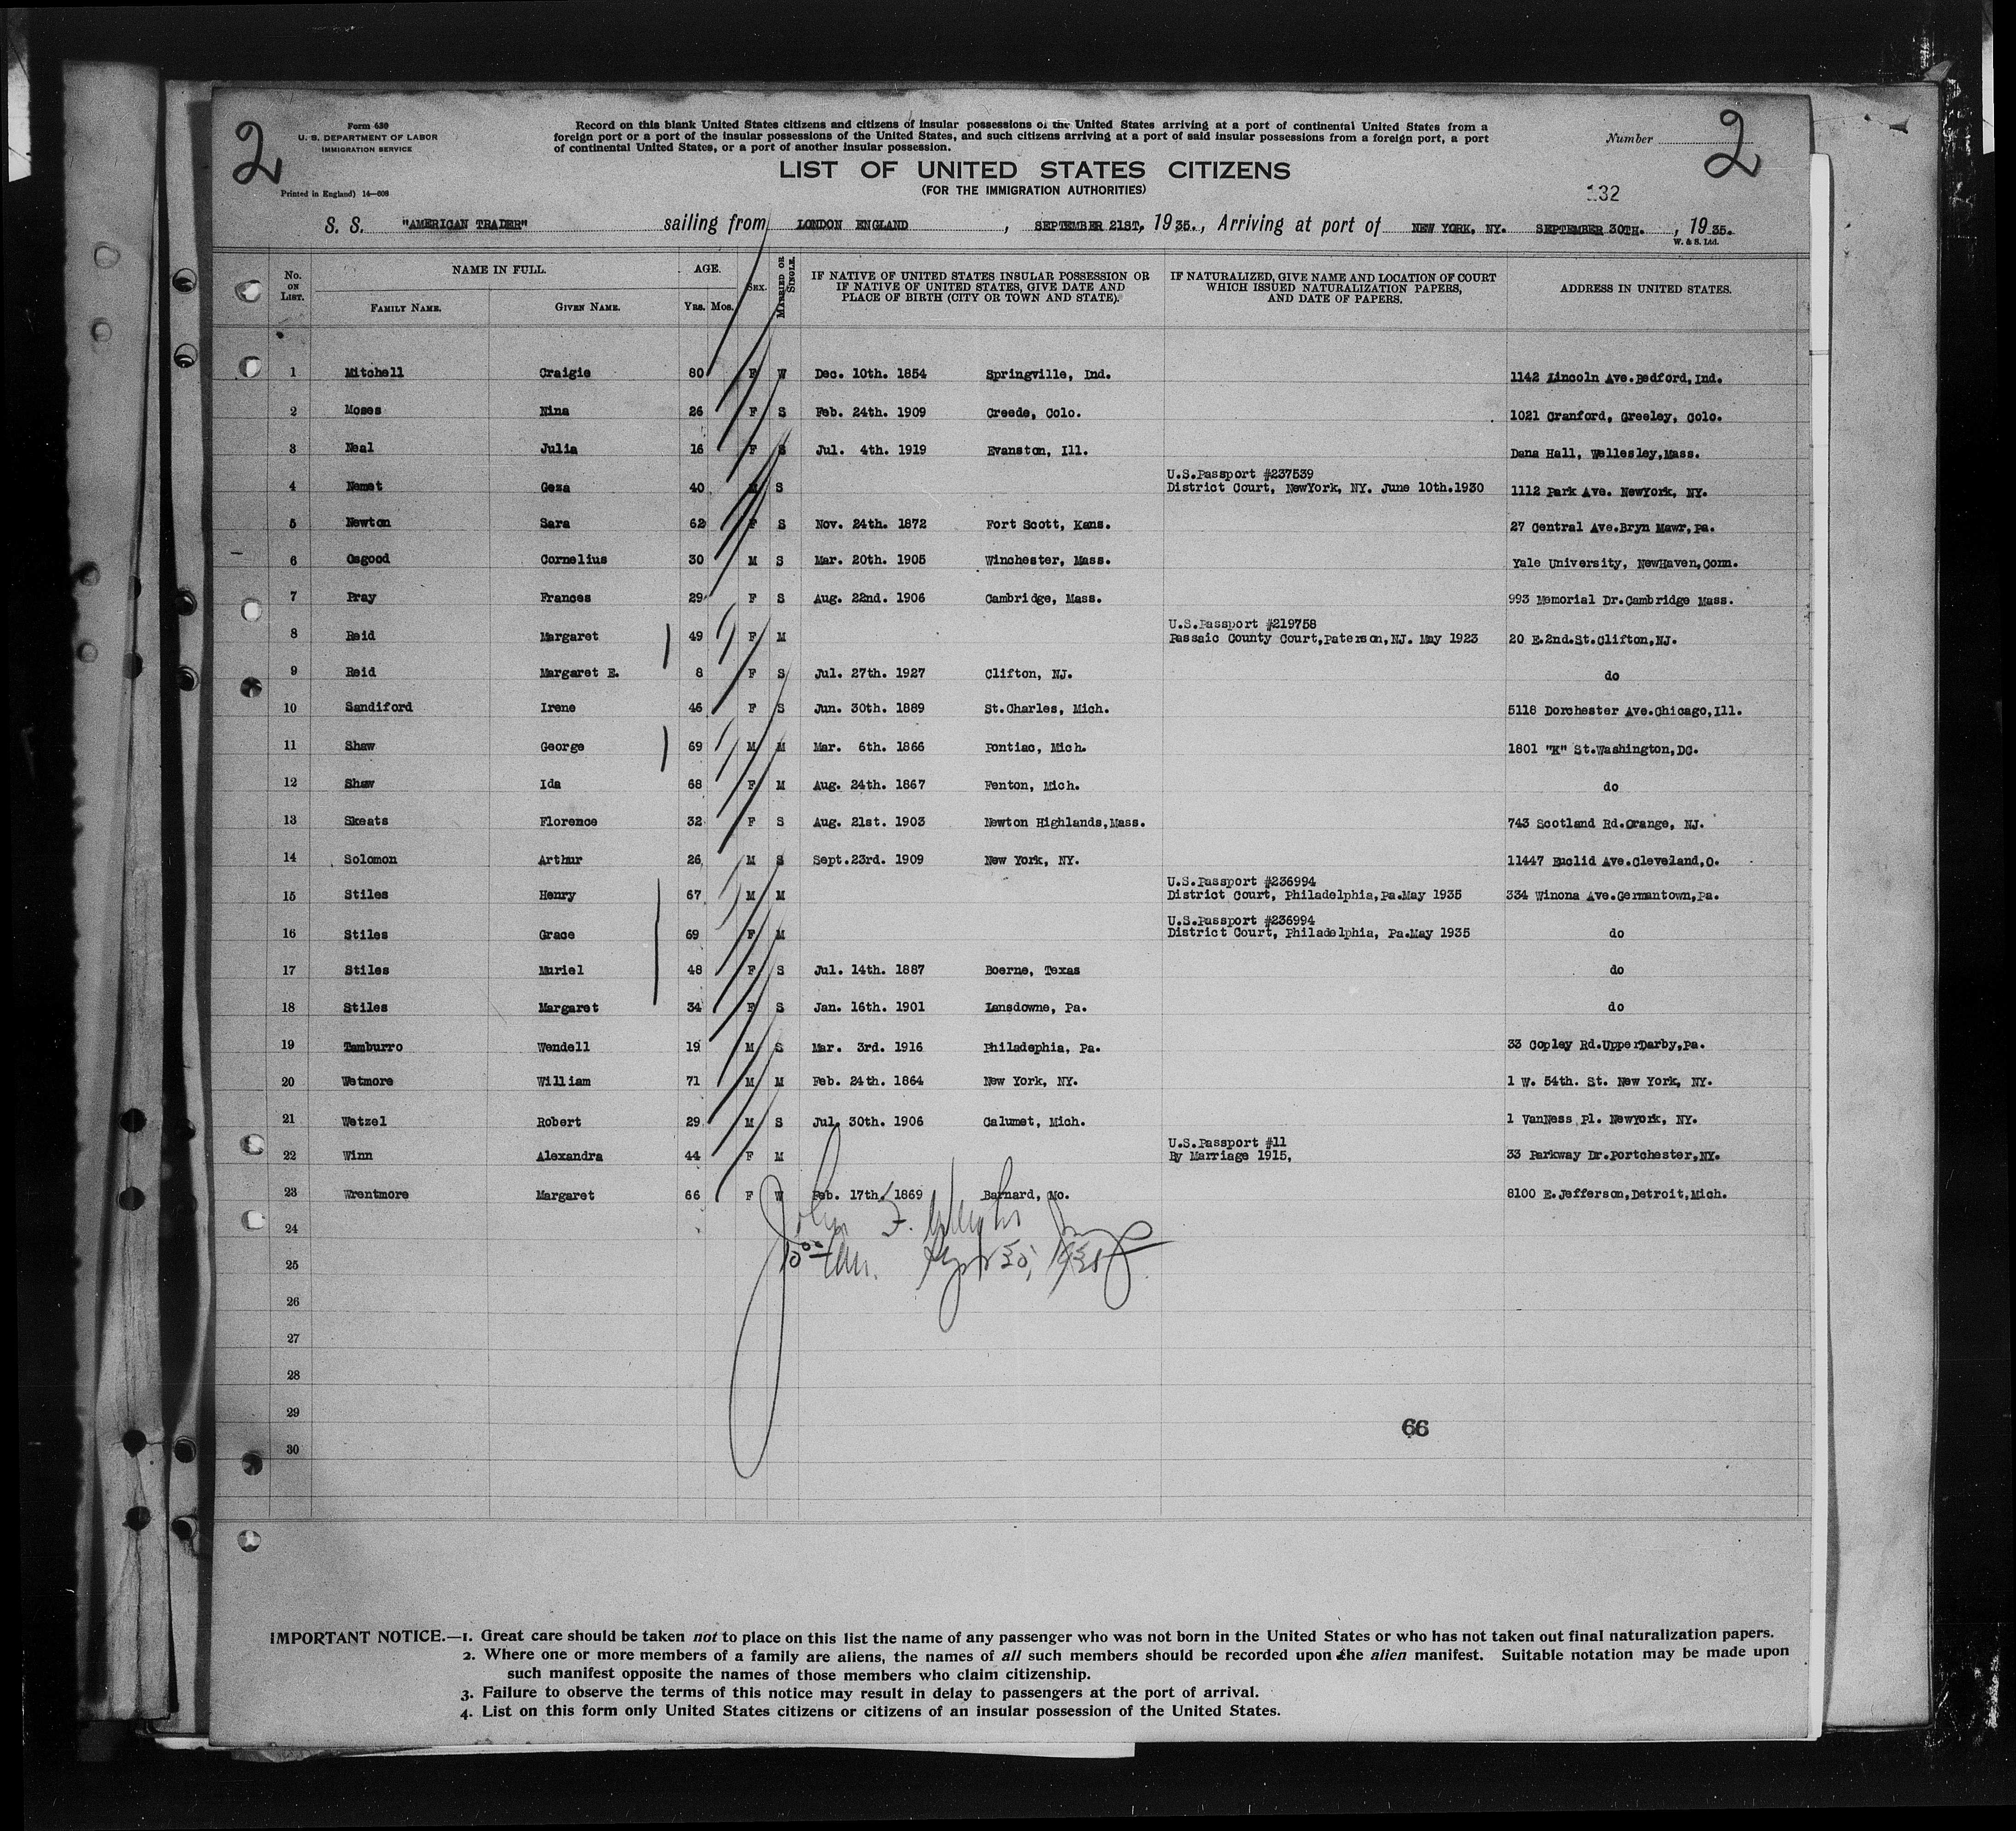 2
Form 630
U. S. DEPARTMENT OF LABOR
IMMIGRATION SERVICE
Printed in England) 14—608
Record on this blank United States citizens and citizens of insular possessions of the United States arriving at a port of continental United States from a
foreign port or a port of the insular possessions of the United States, and such citizens arriving at a port of said insular possessions from a foreign port, a port
of continental United States, or a port of another insular possession.
Number
2
LIST OF UNITED STATES CITIZENS
(FOR THE IMMIGRATION AUTHORITIES)
132
S. S. "AMERICAN TRADER" sailing from LONDON ENGLAND , SEPTEMBER 21ST, 1935., Arriving at port of NEW YORK, NY. SEPTEMBER 30TH. , 1935.
W. & S. Ltd.
No. ON LIST. NAME IN FULL. FAMILY NAME. GIVEN NAME. AGE. Yrs. Mos. SEX. MARRIED OR SINGLE. IF NATIVE OF UNITED STATES INSULAR POSSESSION OR IF NATIVE OF UNITED STATES, GIVE DATE AND PLACE OF BIRTH (CITY OR TOWN AND STATE). IF NATURALIZED, GIVE NAME AND LOCATION OF COURT WHICH ISSUED NATURALIZATION PAPERS, AND DATE OF PAPERS. ADDRESS IN UNITED STATES.
1 Mitchell Craigie 80 F W Dec. 10th. 1854 Springville, Ind. 1142 Lincoln Ave.Bedford,Ind.
2 Moses Nina 26 F S Feb. 24th. 1909 Creede, Colo. 1021 Cranford, Greeley, Colo.
3 Neal Julia 16 F S Jul. 4th. 1919 Evanston, Ill. Dana Hall, Wellesley,Mass.
U.S.Passport #237539
4 Nemet Geza 40 M S District Court, NewYork, NY. June 10th.1930 1112 Park Ave. NewYork, NY.
5 Newton Sara 62 F S Nov. 24th. 1872 Fort Scott, Kans. 27 Central Ave.Bryn Mawr,Pa.
6 Osgood Cornelius 30 M S Mar. 20th. 1905 Winchester, Mass. Yale University, NewHaven,Conn.
7 Pray Frances 29 F S Aug. 22nd. 1906 Cambridge, Mass. 993 Memorial Dr.Cambridge Mass.
U.S.Passport #219758
8 Reid Margaret 49 F M Passaic County Court,Paterson,NJ. May 1923 20 E.2nd.St.Clifton,NJ.
9 Reid Margaret E. 8 F S Jul. 27th. 1927 Clifton, NJ. do
10 Sandiford Irene 46 F S Jun. 30th. 1889 St.Charles, Mich. 5118 Dorchester Ave.Chicago,Ill.
11 Shaw George 69 M M Mar. 6th. 1866 Pontiac, Mich. 1801 "K" St.Washington,DC.
12 Shaw Ida 68 F M Aug. 24th. 1867 Fenton, Mich. do
13 Skeats Florence 32 F S Aug. 21st. 1903 Newton Highlands,Mass. 743 Scotland Rd.Orange, NJ.
14 Solomon Arthur 26 M S Sept.23rd. 1909 New York, NY. 11447 Euclid Ave.Cleveland,O.
U.S.Passport #236994
15 Stiles Henry 67 M M District Court, Philadelphia,Pa.May 1935 334 Winona Ave.Germantown,Pa.
U.S.Passport #236994
16 Stiles Grace 69 F M District Court, Philadelphia, Pa.May 1935 do
17 Stiles Muriel 48 F S Jul. 14th. 1887 Boerne, Texas do
18 Stiles Margaret 34 F S Jan. 16th. 1901 Lansdowne, Pa. do
19 Tamburro Wendell 19 M S Mar. 3rd. 1916 Philadephia, Pa. 33 Copley Rd.UpperDarby,Pa.
20 Wetmore William 71 M M Feb. 24th. 1864 New York, NY. 1 W. 54th. St. New York, NY.
21 Wetzel Robert 29 M S Jul. 30th. 1906 Calumet, Mich. 1 VanNess Pl. Newyork, NY.
U.S.Passport #11
22 Winn Alexandra 44 F M By Marriage 1915, 33 Parkway Dr.Portchester,NY.
23 Wrentmore Margaret 66 F W Feb. 17th. 1869 Barnard, Mo. 8100 E.Jefferson,Detroit,Mich.
24
John F.
25
10⁰⁰ am. Sept 30, 1935
26
27
28
29
66
30
IMPORTANT NOTICE.—1. Great care should be taken not to place on this list the name of any passenger who was not born in the United States or who has not taken out final naturalization papers.
2. Where one or more members of a family are aliens, the names of all such members should be recorded upon the alien manifest. Suitable notation may be made upon
such manifest opposite the names of those members who claim citizenship.
3. Failure to observe the terms of this notice may result in delay to passengers at the port of arrival.
4. List on this form only United States citizens or citizens of an insular possession of the United States.